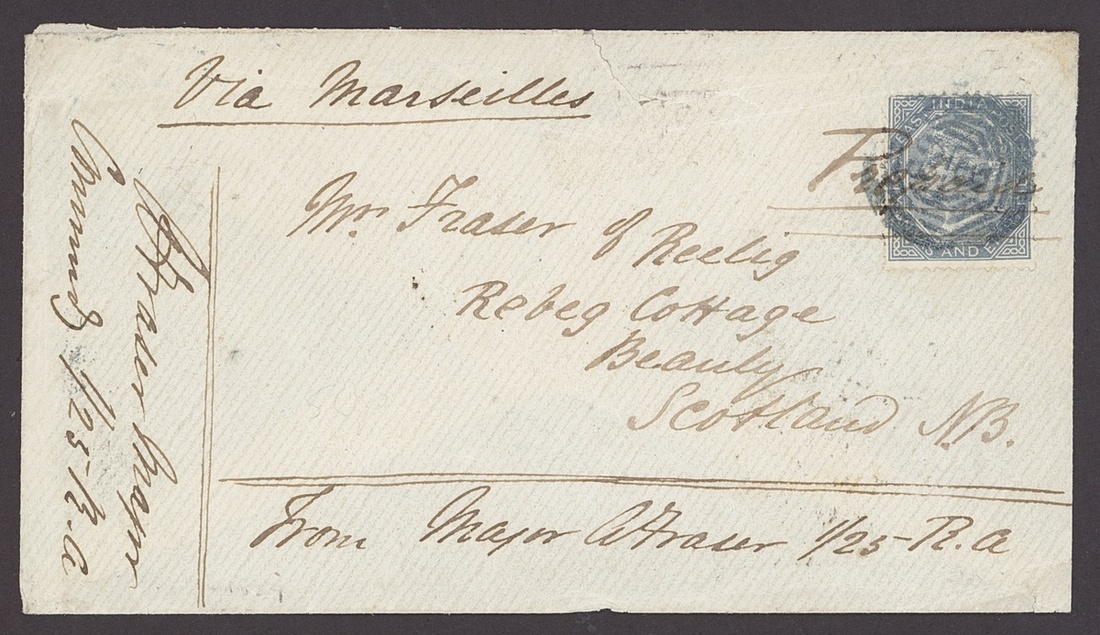 Via Marseilles
INDIA
S AND E
Mr. Fraser of Reelig
Rebeg Cottage
Beauly
Scotland N.B.
From Major A Fraser 1/25 R.A
A Fraser Major
1/25 R.A